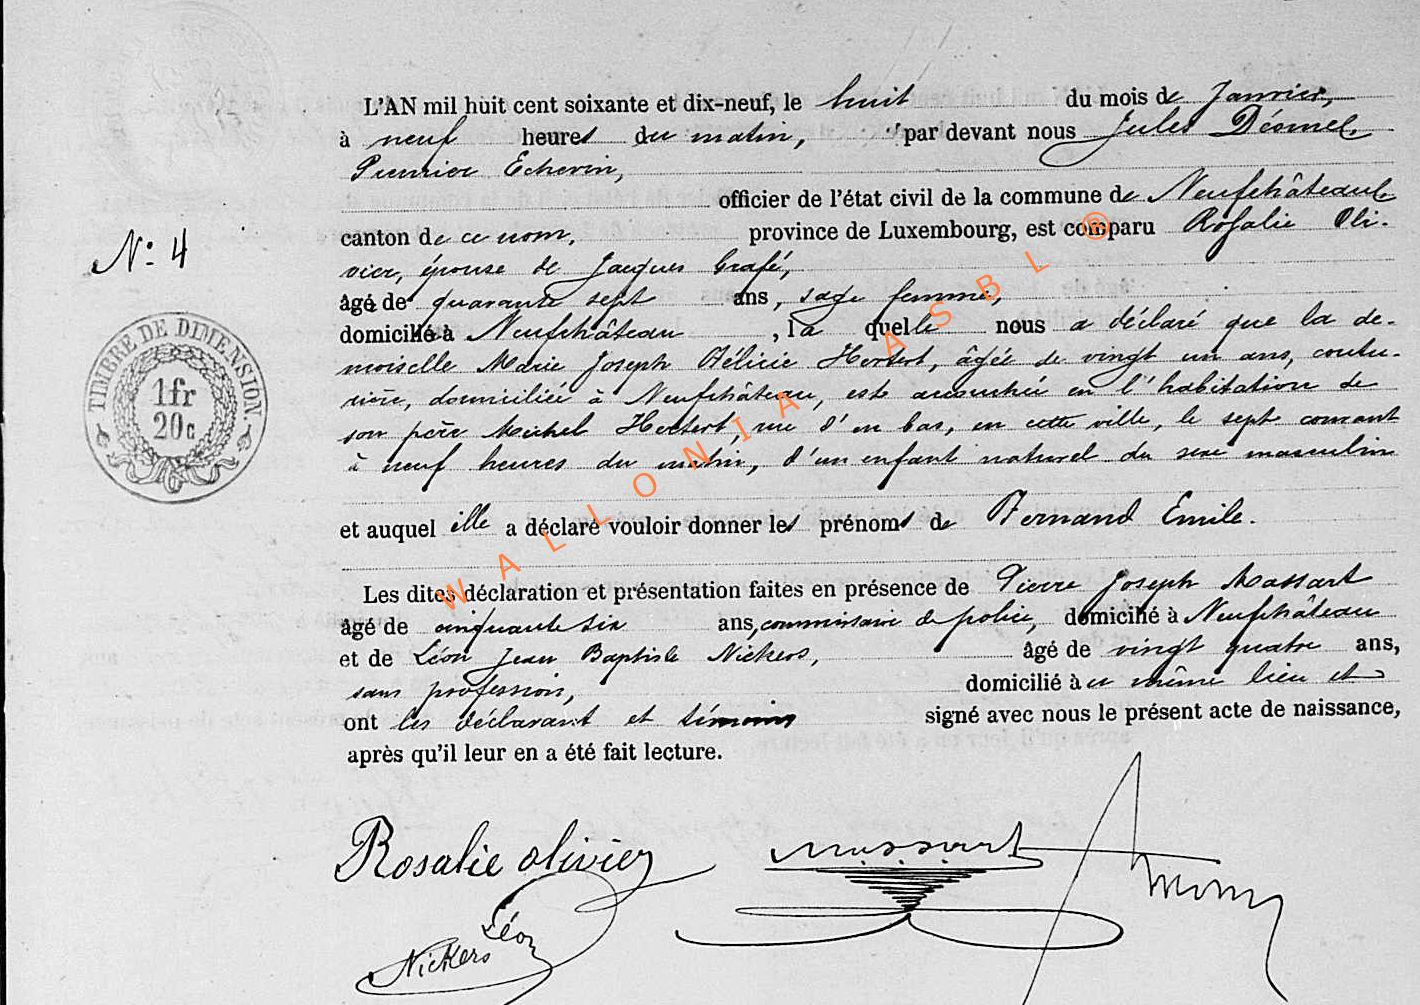 L'AN mil huit cent soixante et dix-neuf, le huit du mois de Janvier,
à neuf heures du matin, par devant nous Jules
Premier Echevin,
officier de l'état civil de la commune de Neufchâteau
canton de ce nom, province de Luxembourg, est comparu Rosalie Oli-
vier, épouse de Jacques Grafé,
âgée de quarante sept ans, sage femme,
domiciliée à Neufchâteau, laquelle nous a déclaré que la de-
moiselle Marie Joseph Félicie Herbert, âgée de vingt un ans, coutu-
rière, domiciliée à Neufchâteau, est accouchée en l'habitation de
son père Michel Herbert, rue d'en bas, en cette ville, le sept courant
à neuf heures du matin, d'un enfant naturel du sexe masculin
et auquel elle a déclaré vouloir donner les prénoms de Fernand Emile.
Les dites déclaration et présentation faites en présence de Pierre Joseph Massart
âgé de cinquante six ans, commissaire de police, domicilié à Neufchâteau
et de Léon Jean Baptiste Nickers, âgé de vingt quatre ans,
sans profession, domicilié à ce même lieu et
ont les déclarant et témoins signé avec nous le présent acte de naissance,
après qu'il leur en a été fait lecture.
No. 4
TIMBRE DE DIMENSION.
1fr
20c
WALLONIA ASBL ®
Rosalie olivier
massart
Léon
Nickers